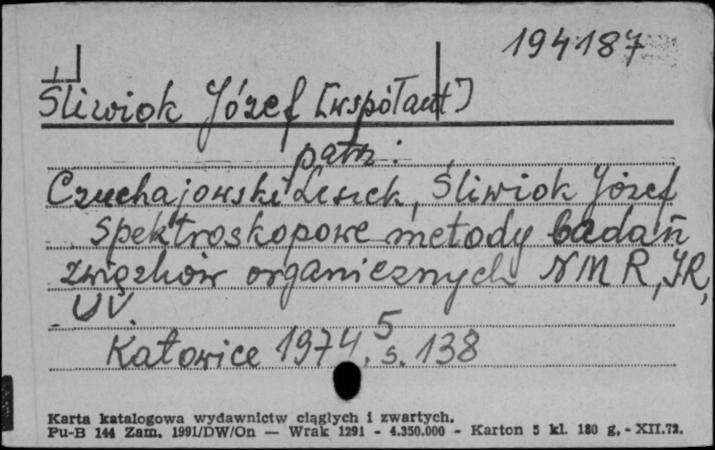 194187
Śliwiok Józef [współaut]
patrz:
Czuchajowski Leszek, Śliwiok Józef
Spektroskopowe metody badań
związków organicznych NMR, JR,
UV.
Katowice 1974. s. 138
5
Karta katalogowa wydawnictw ciągłych i zwartych.
Pu-B 144 Zam. 1991/DW/On — Wrak 1291 - 4.350.000 - Karton 5 kl. 180 g. - XII.72.